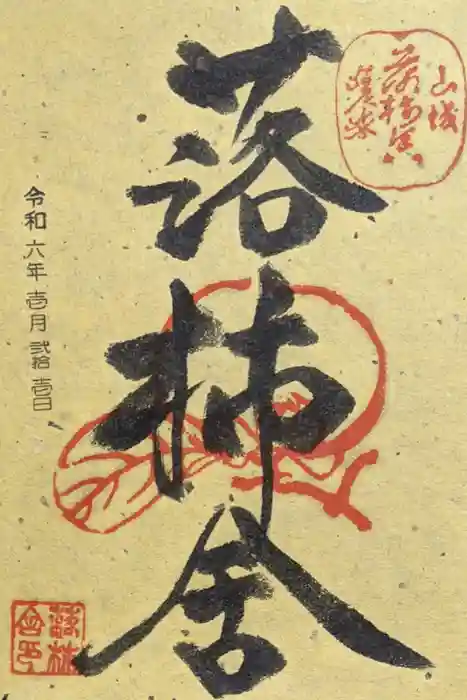 山城
落柿舎
嵯峨
落柿舎
令和六年壱月弐拾壱日
落柿舎印